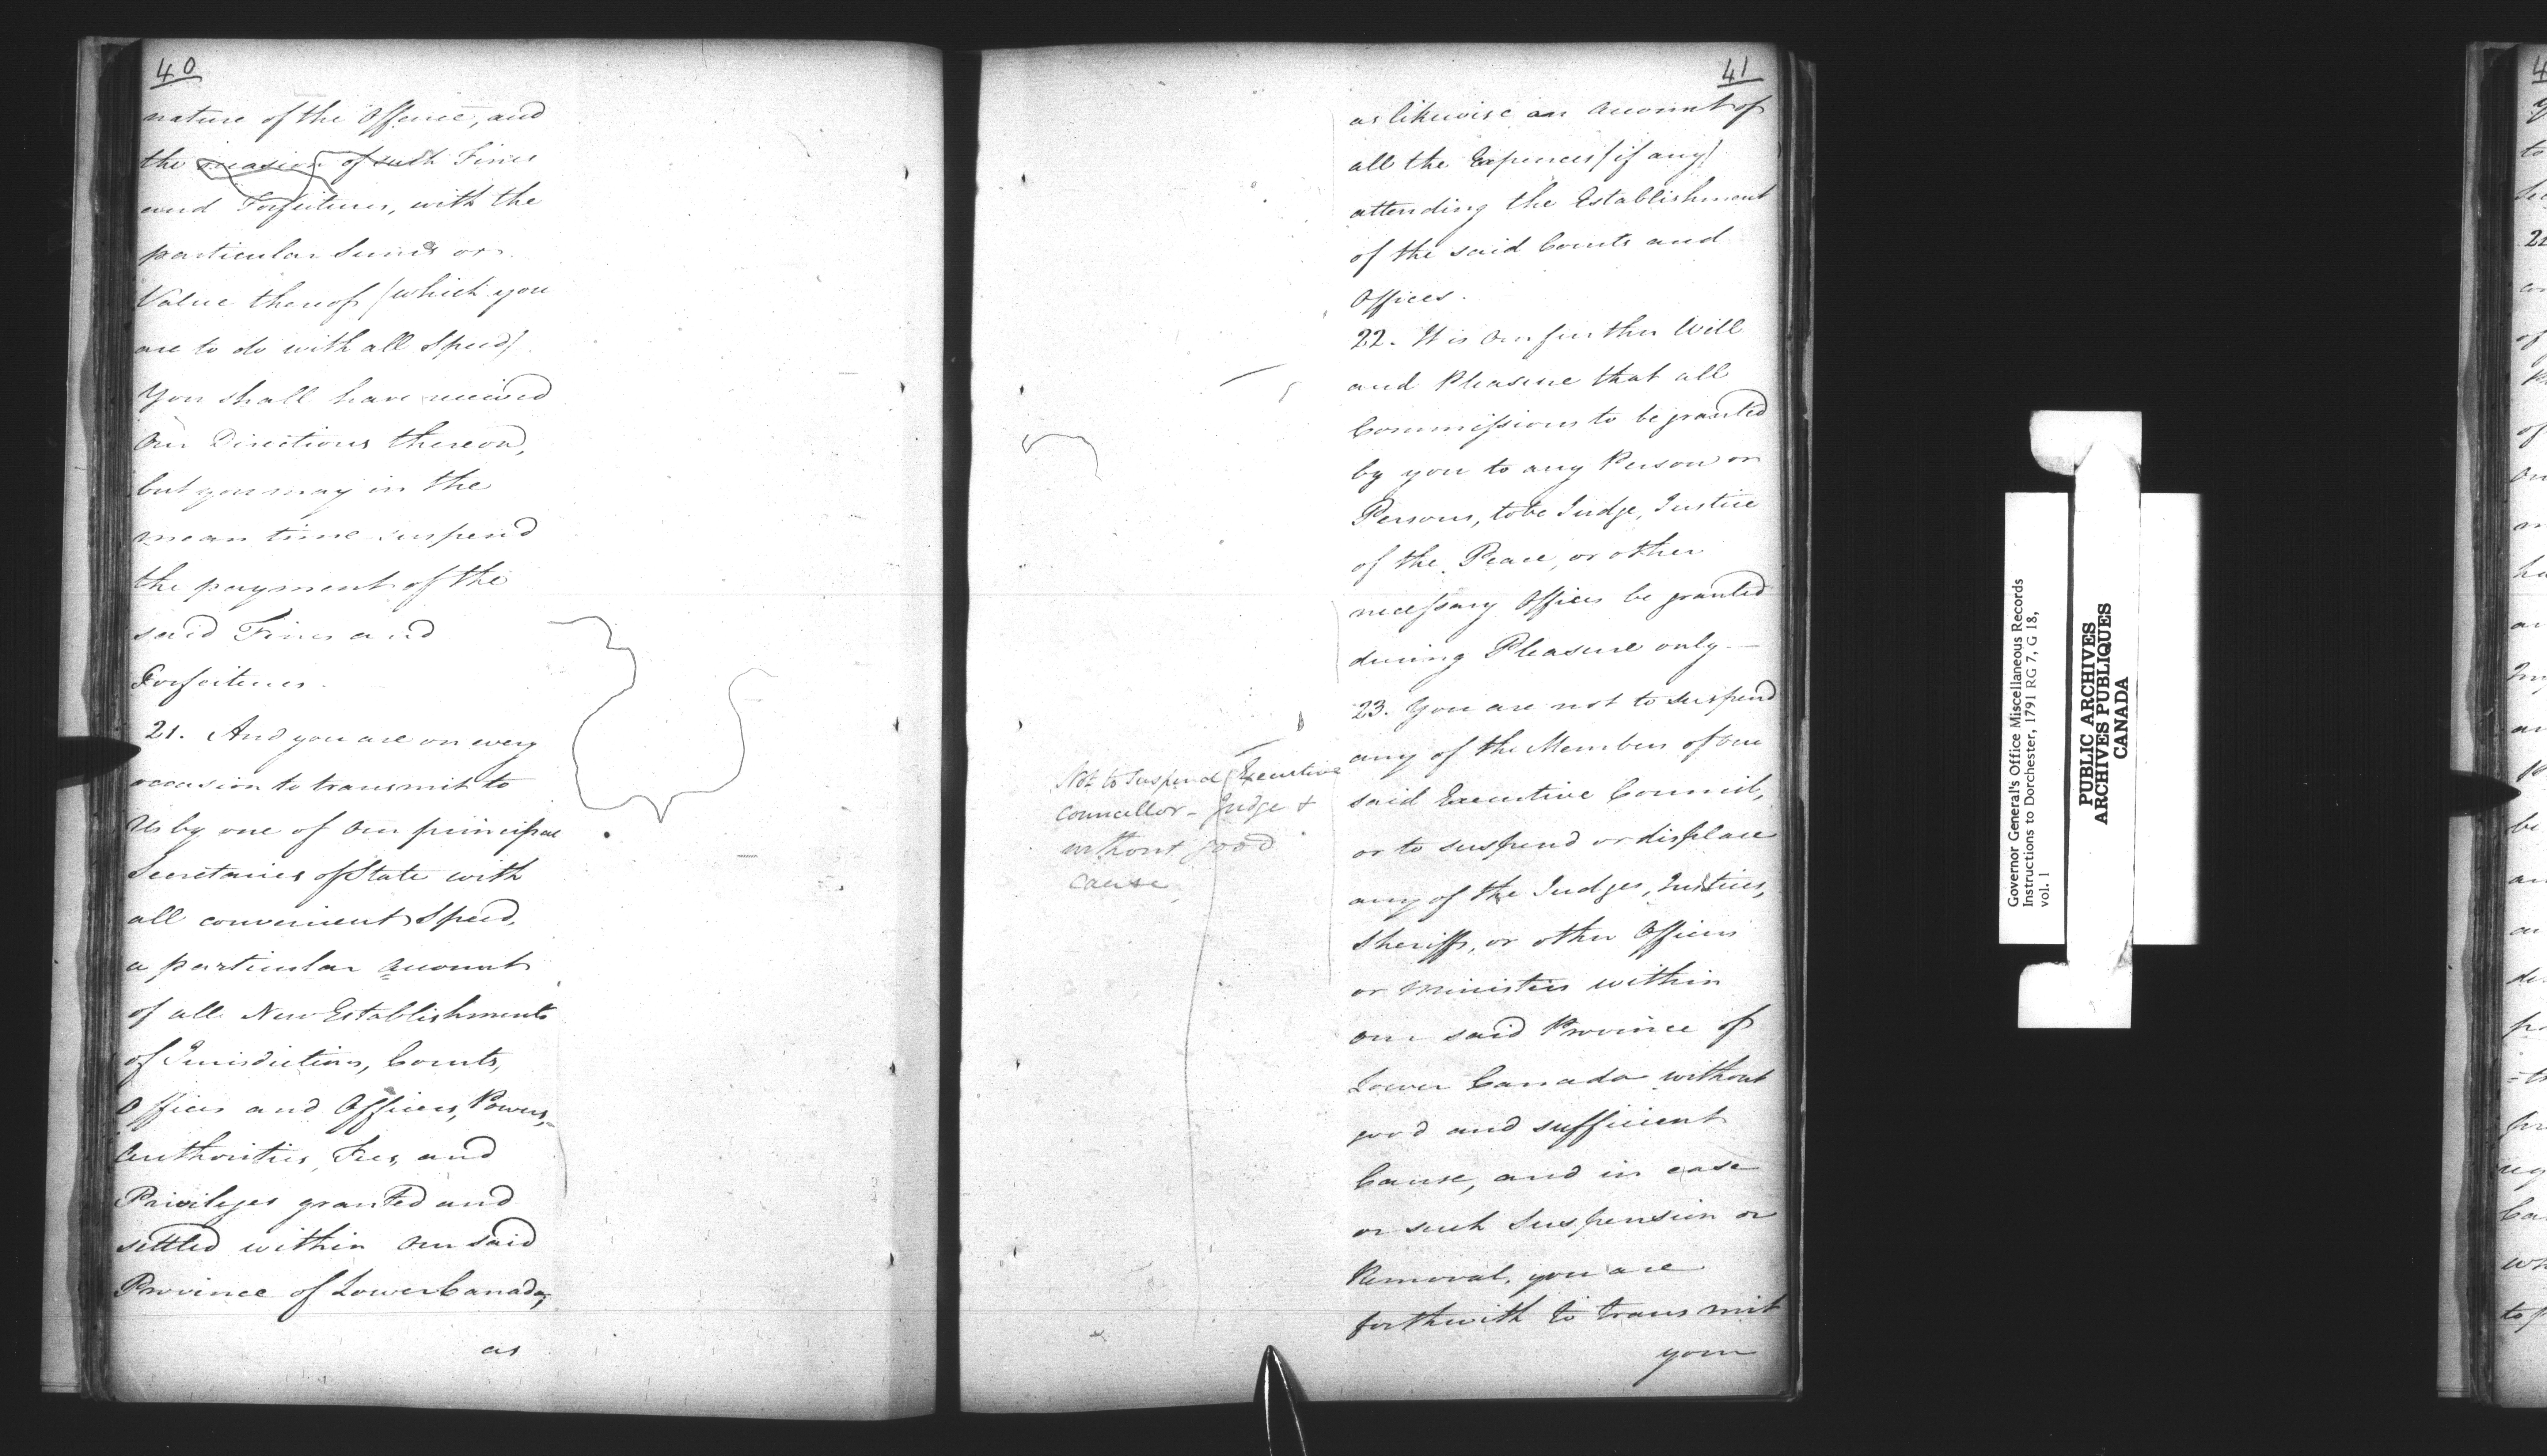 40
nature of the Offence, and
the occasion of such Fines
and Forfeitures, with the
particular Sums or
Value thereof (which you
are to do with all Speed)
You shall have received
Our Directions thereon,
but you may in the
mean time suspend
the payment of the
said Fines and
Forfeitures.
21. And you are on every
occasion to transmit to
Us by one of Our principal
Secretaries of State with
all convenient Speed,
a particular account
of all New Establishments
of Jurisdictions, Courts,
Offices and Officers, Powers,
Authorities, Fees, and
Privileges granted and
settled within Our said
Province of Lower Canada,
as
41
as likewise an account of
all the Expences (if any)
attending the Establishment
of the said Courts and
Offices.
22. It is Our further Will
and Pleasure that all
Commissions to be granted
by you to any Person or
Persons, to be Judge, Justice
of the Peace, or other
necessary Offices be granted
during Pleasure only —
23. You are not to suspend
any of the Members of our
said Executive Council,
or to suspend or displace
any of the Judges, Justices,
Sheriffs, or other Officers
or Ministers within
our said Province of
Lower Canada without
good and sufficient
Cause, and in case
or such Suspension or
Removal, you are
forthwith to transmit
your
Not to suspend Executive
councellor - Judge +
without good
cause
Governor General's Office Miscellaneous Records
Instructions to Dorchester, 1791 RG 7, G 18,
vol. 1
PUBLIC ARCHIVES
ARCHIVES PUBLIQUES
CANADA